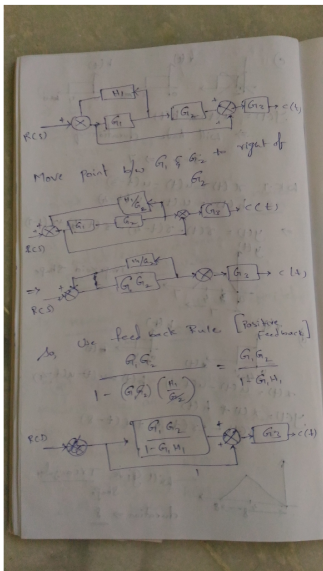 H1
+
R(s) G1 G2 + G3 → C(t)
Move Point b/w G1 & G2 to right of
G2
H1/G2
+ G1 G2 G3 → C(t)
R(s)
⇒ + G1 G2 G3 → C(t)
R(s)
So, Use feed back Rule [Positive
feedback]
G1 G2 / 1 - (G1 G2) (H1/G2) = G1 G2 / 1 - G1 H1
R(s) G1 G2 / 1 - G1 H1 + G3 → C(t)
+
1